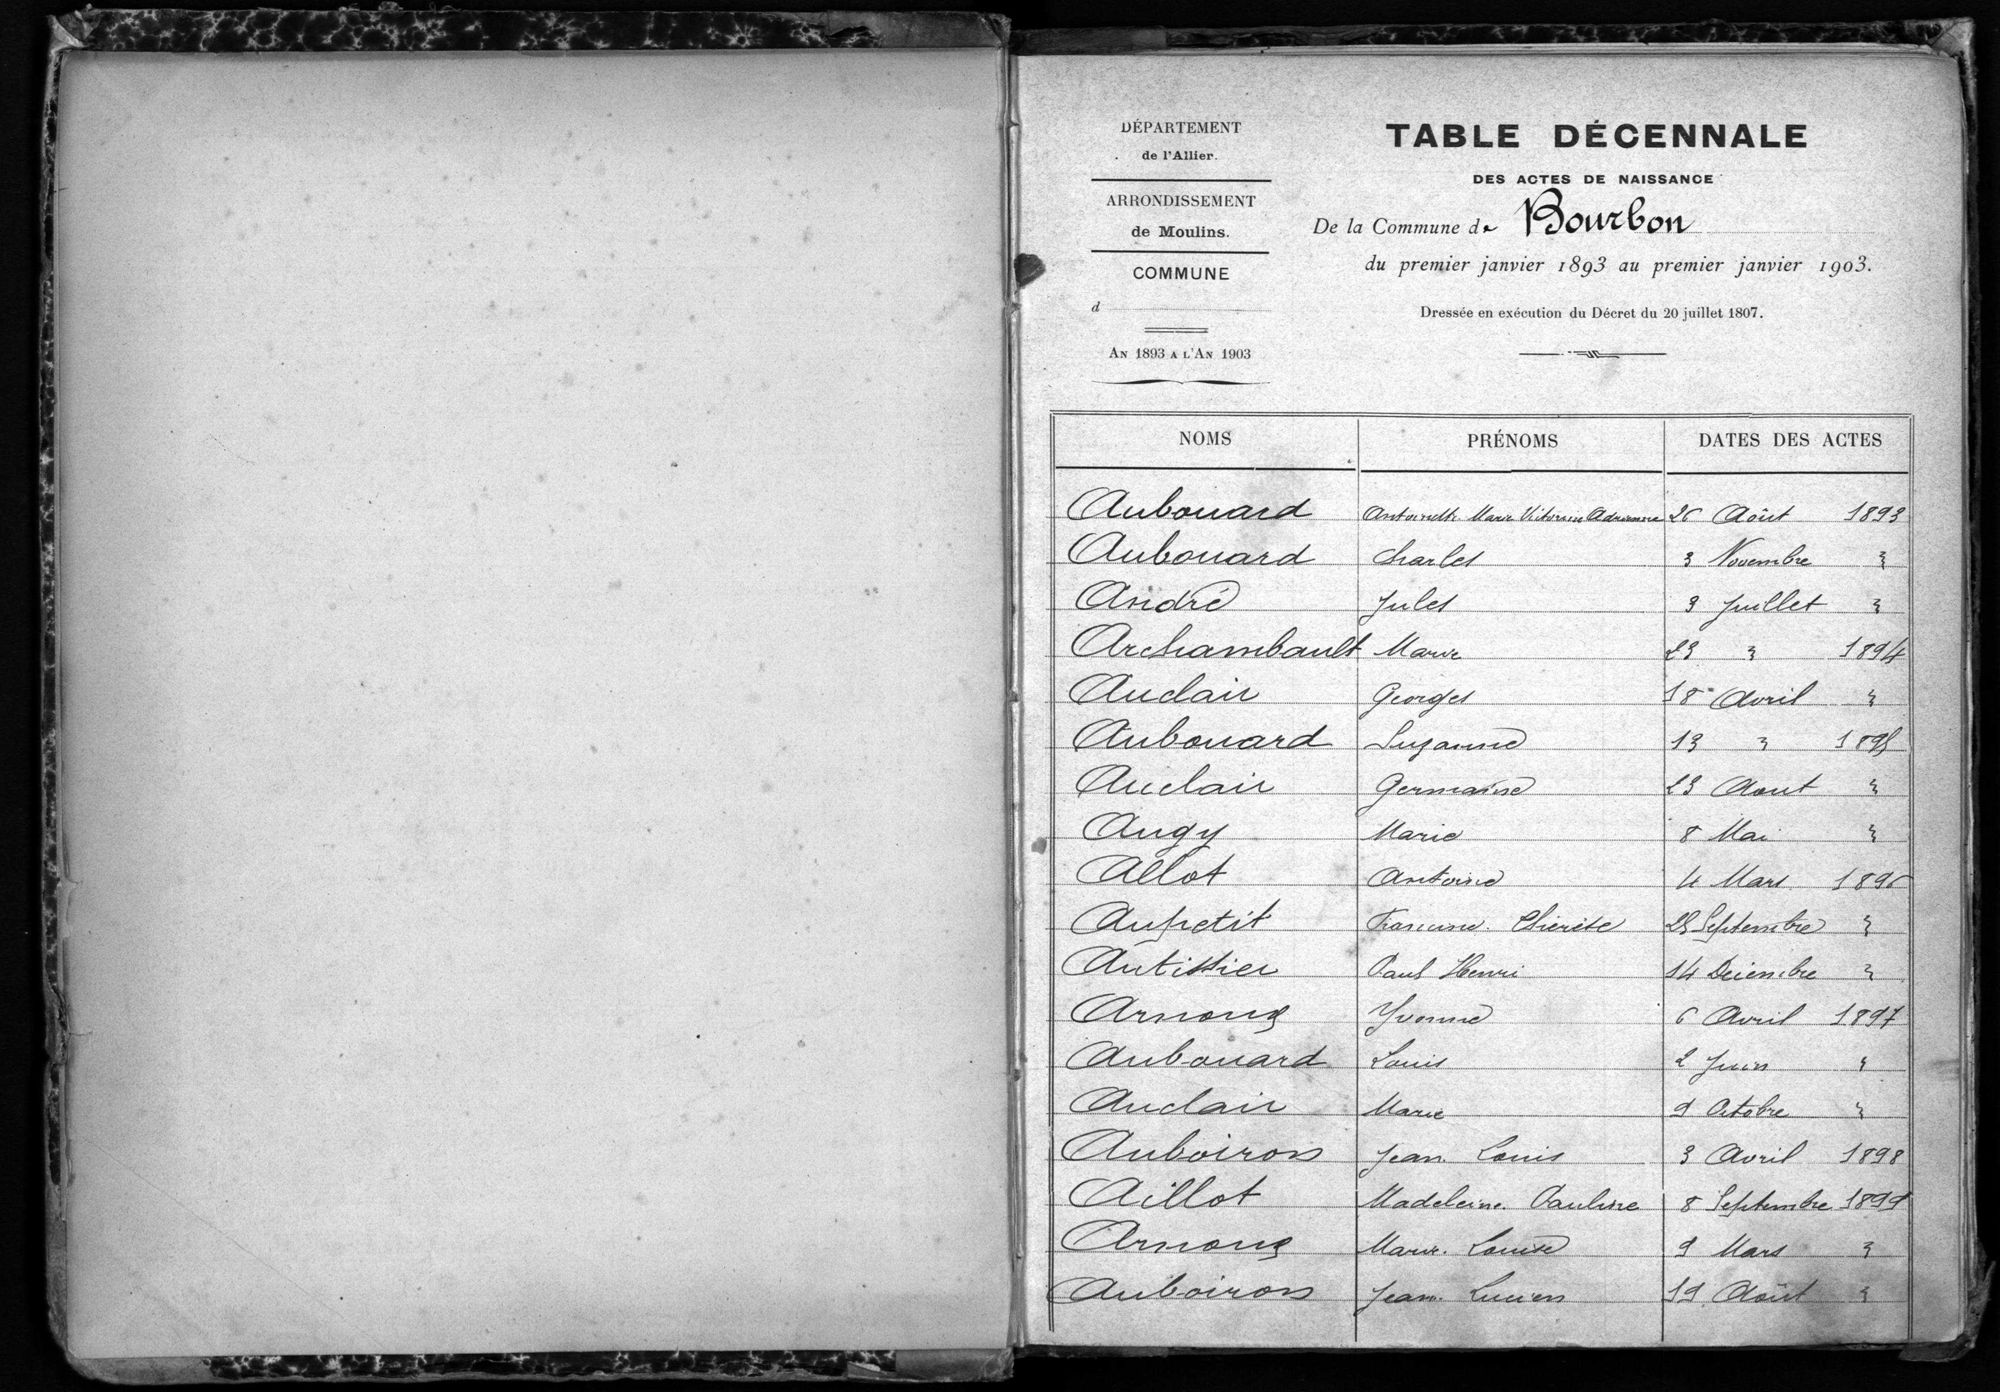 DÉPARTEMENT
de l'Allier.
ARRONDISSEMENT
de Moulins.
COMMUNE
d
AN 1893 A L'AN 1903
TABLE DÉCENNALE
DES ACTES DE NAISSANCE
De la Commune de Bourbon
du premier janvier 1893 au premier janvier 1903.
Dressée en exécution du Décret du 20 juillet 1807.
NOMS PRÉNOMS DATES DES ACTES
Aubouard Antoinette Marie Victorine Adrienne 26 Août 1893
Aubouard Charles 3 Novembre "
André Jules 3 Juillet "
Archambault Marie 23 " 1894
Auclair Georges 18 Avril "
Aubouard Suzanne 13 " 1895
Auclair Germaine 23 Aout "
Augy Marie 8 Mai "
Allot Antoine 4 Mars 1896
Aupetit Francine. Thérèse Septembre "
Autissier Paul Henri 14 Décembre "
Arnoux Yvonne 6 Avril 1897
Aubouard Louis 2 Juin "
Auclair Marie 9 Octobre "
Auboiron Jean Louis 3 Avril 1898
Aillot Madeleine. Pauline 8 Septembre 1899
Arnoux Marie. Louise 9 Mars "
Auboiron Jean. Lucien 19 Août "